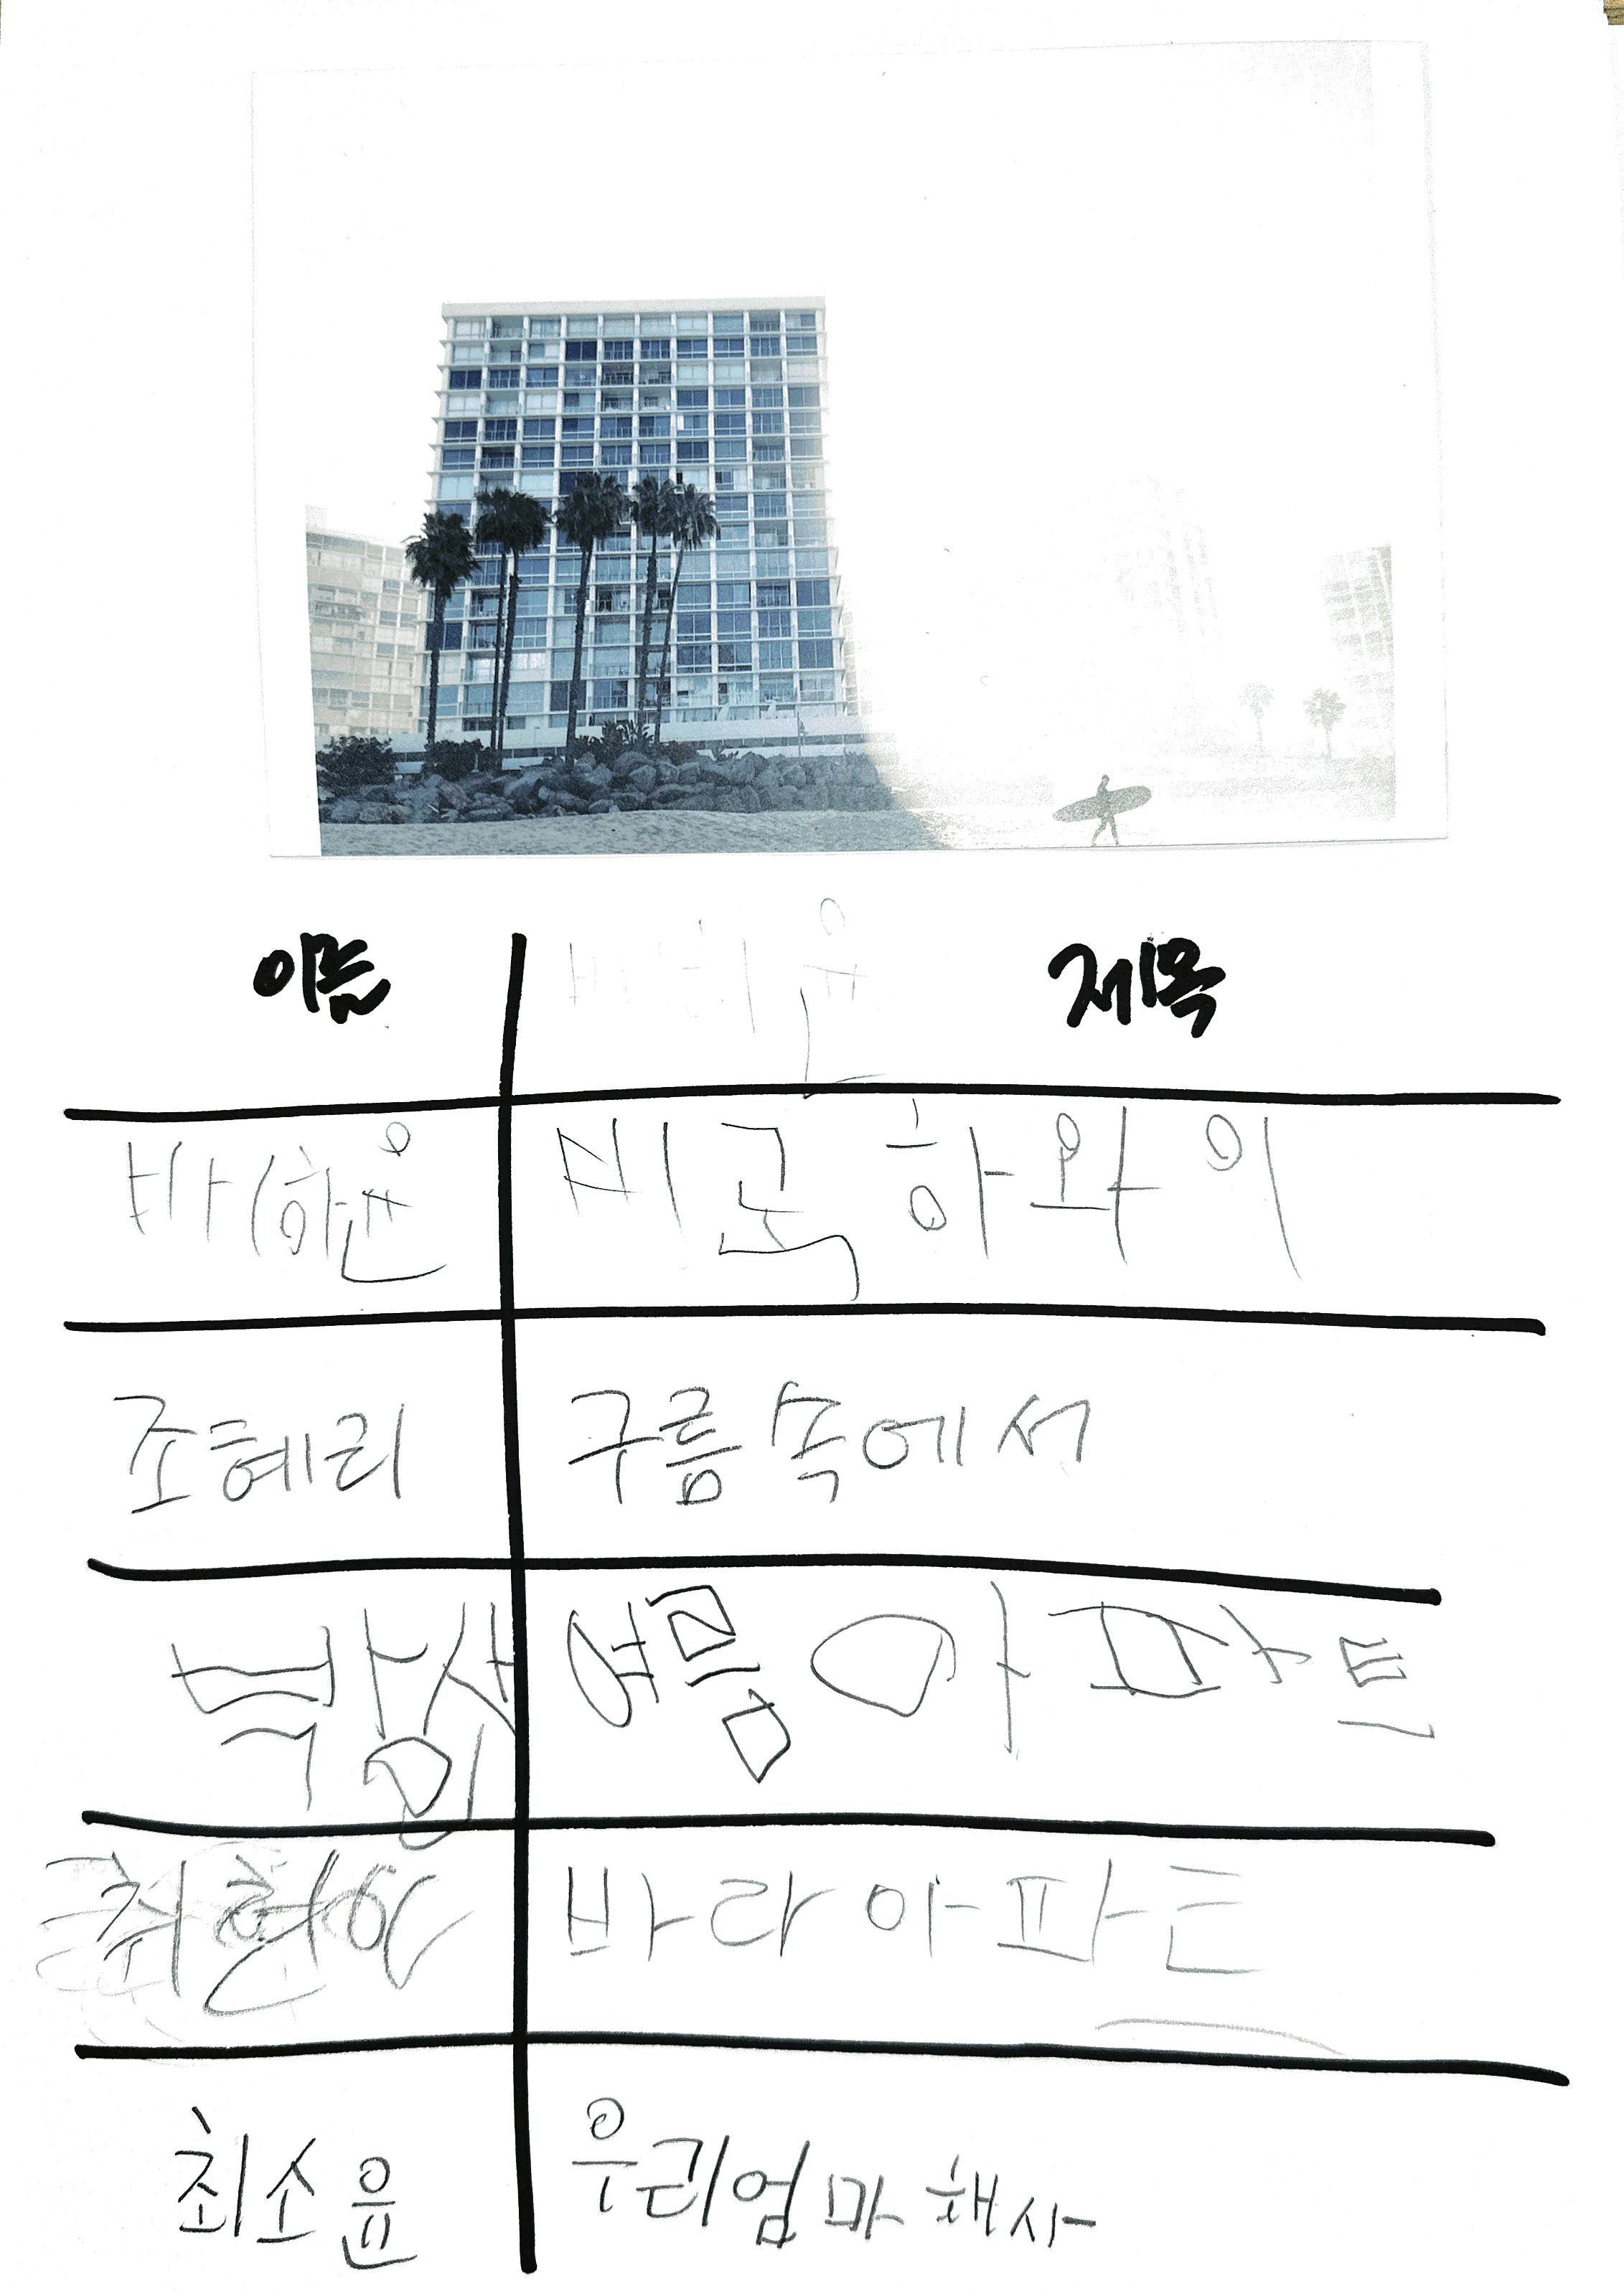 이름 제목
배하윤 미국 하와이
조혜리 구름 속에서
박상인 여름 아파트
바라 아파트
최소윤 우리엄마 홰사